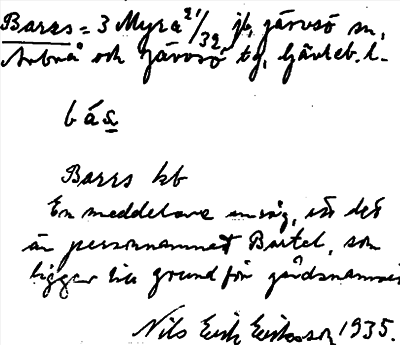 Barss = 3 Myra 21/32, jb, Järvsö sn,
Arbrå och Järvsö tg, Gävleb. l.
bás
Barss kb
En meddelare ansåg, att det
är personnamnet Bartel, som
ligger till grund för gårdsnamnet
Nils Erik Eriksson 1935.